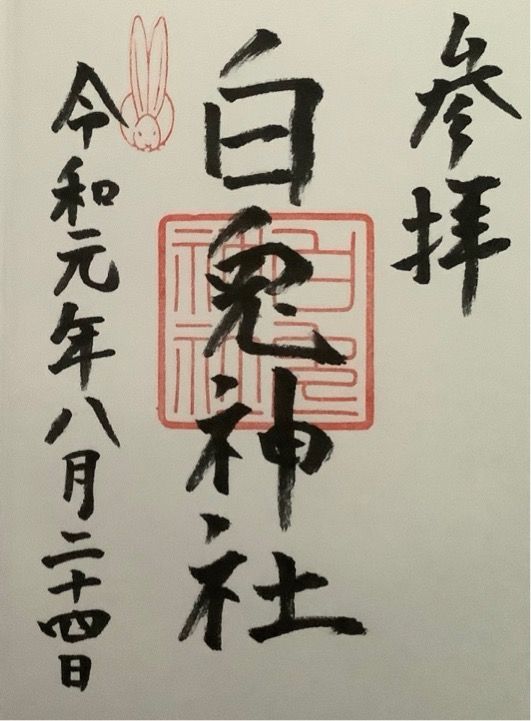 参拝
白兎神社
令和元年八月二十四日
白兎
神社